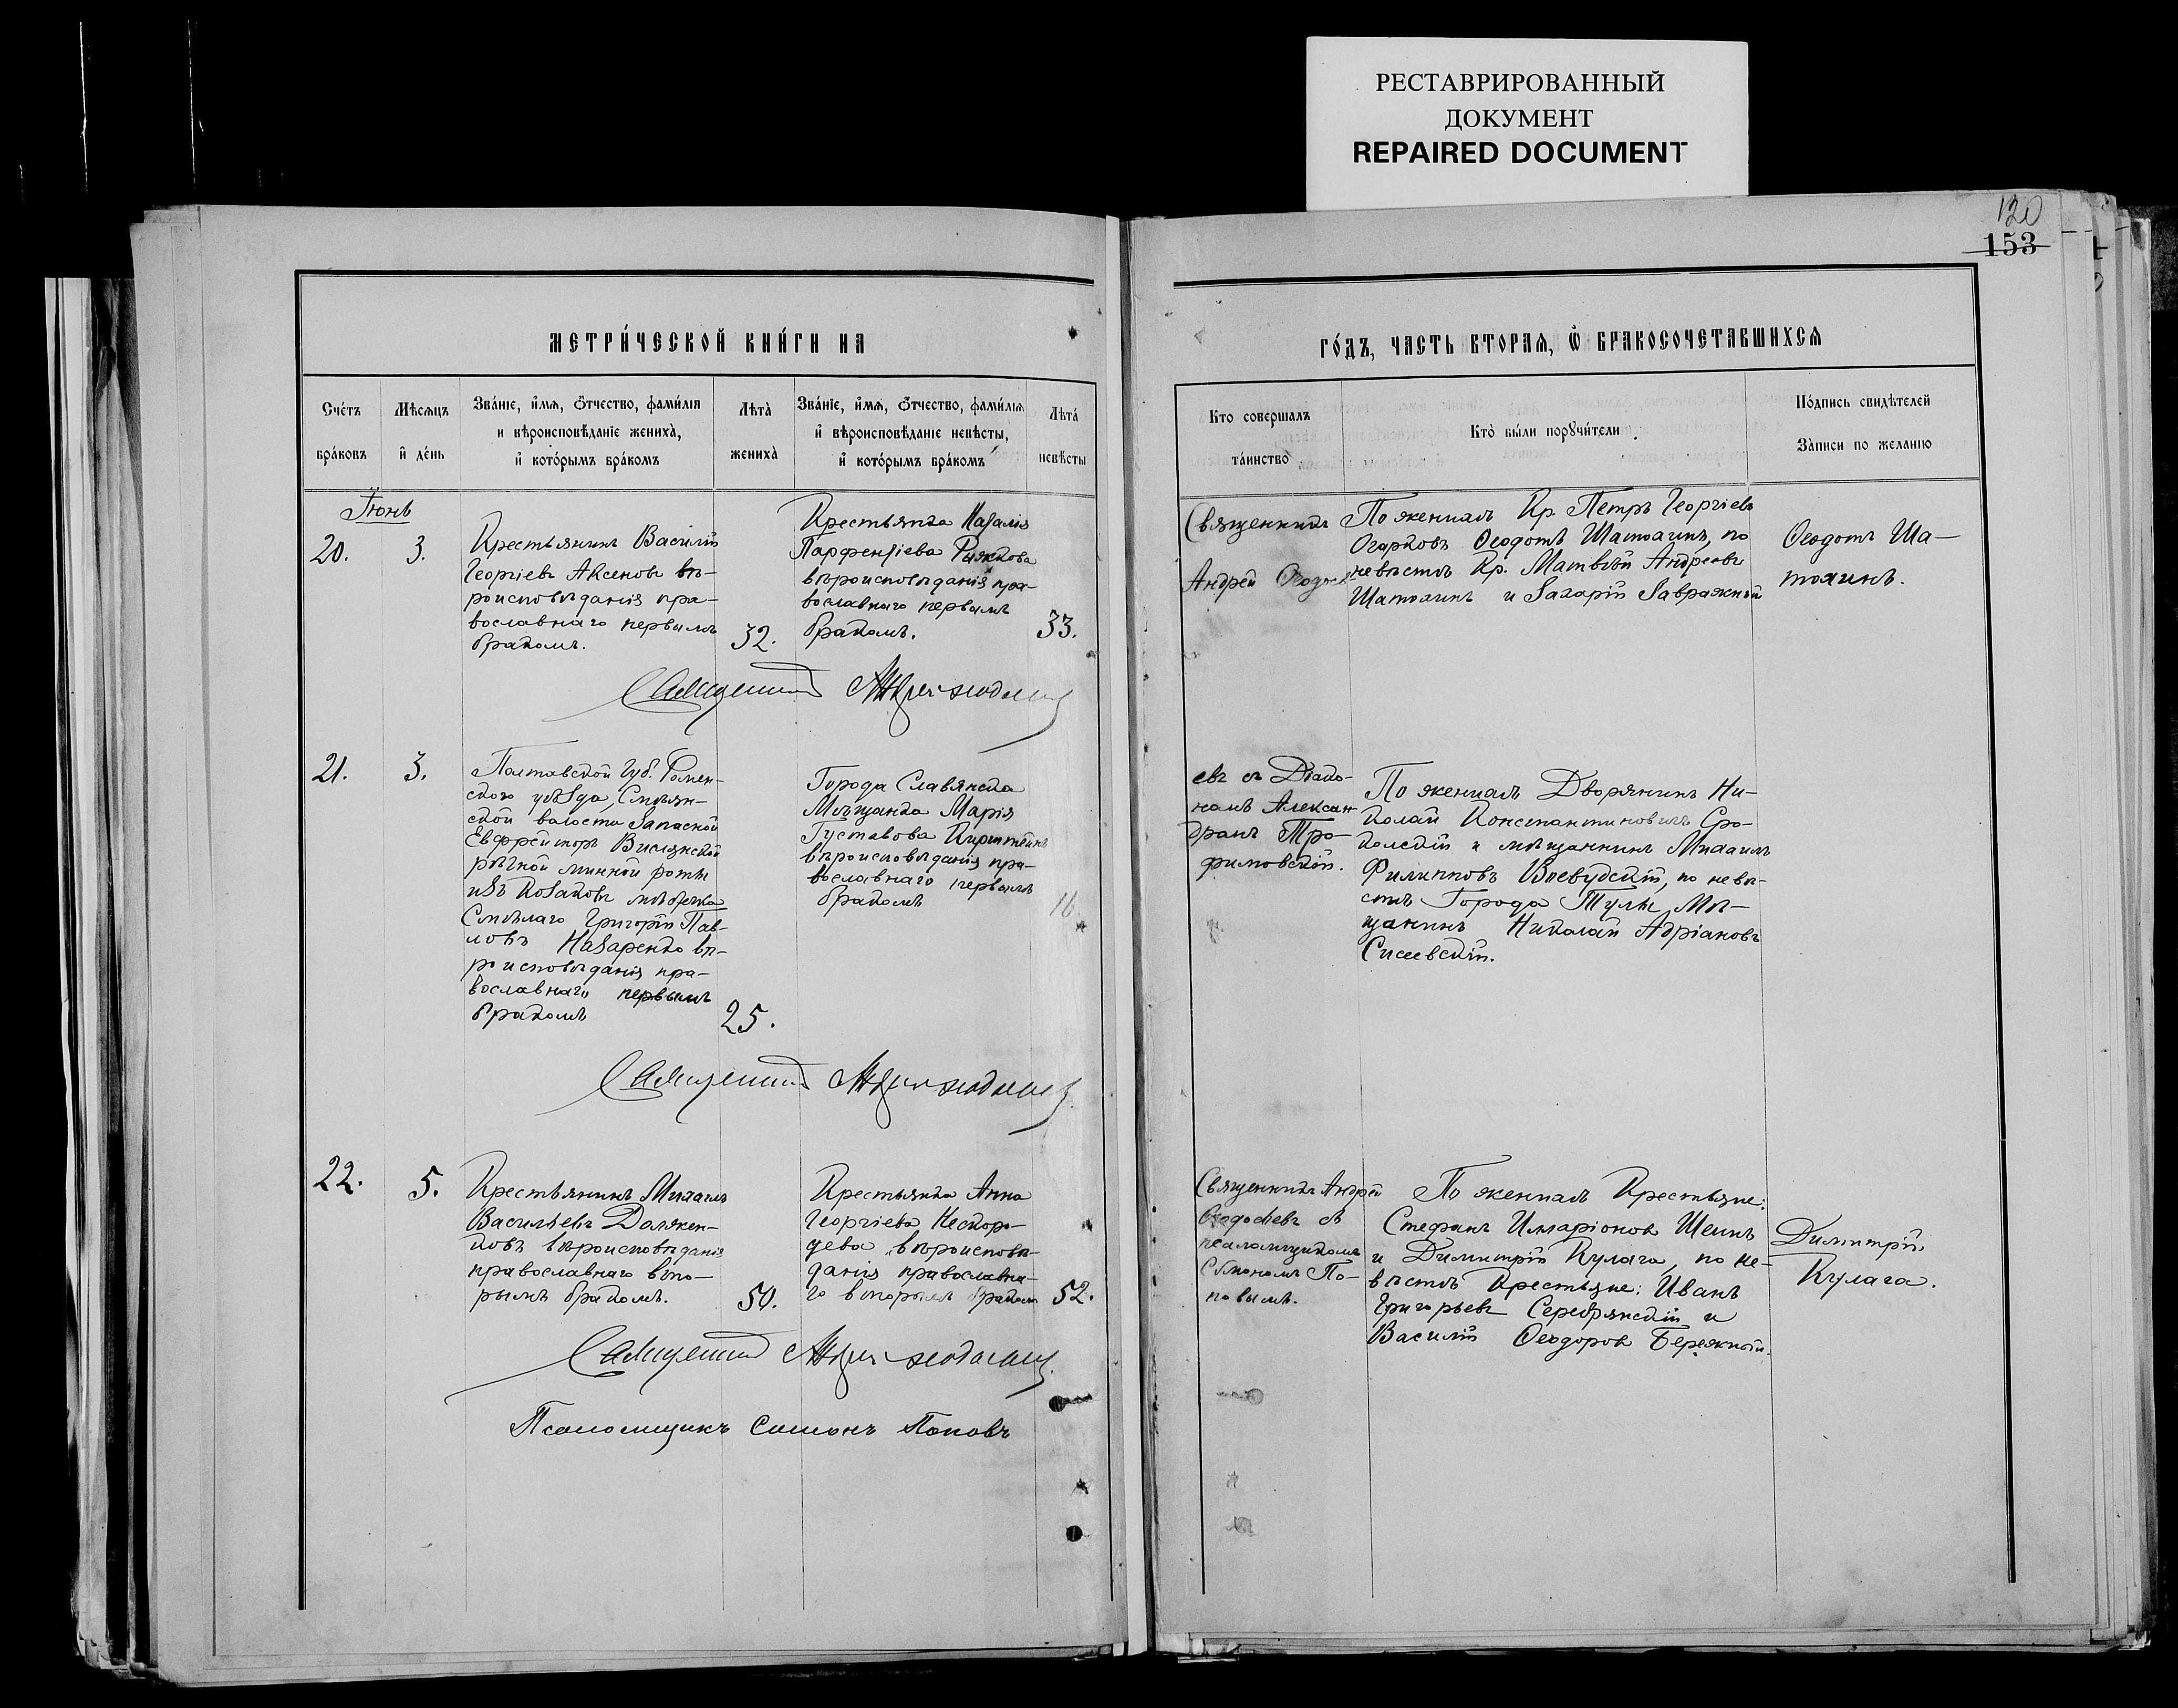 РЕСТАВРИРОВАННЫЙ
ДОКУМЕНТ
REPAIRED DOCUMENT
120
153
МЕТРИ́ЧЕСКОЙ КНИ́ГИ НА
ГО́ДЪ, ЧАСТЬ ВТОРАЯ, Ѡ БРАКОСОЧЕТАВШИХСЯ
Сче́тъ
бра́ковъ
Мѣсяцъ
и де́нь
Зва́ніе, и́мя, ѻ́тчество, фами́лія
и вѣроисповѣ́даніе жениха̀,
и кото́рымъ бра́комъ
Лѣта̀
жениха̀
Зва́ніе, и́мя, ѻ́тчество, фами́лія
и вѣроисповѣ́даніе невѣ́сты,
и кото́рымъ бра́комъ
Лѣта́
невѣ́сты
Кто совершалъ
та́инство
Кто̀ бы́ли порꙋчи́тели
По́дпись свидѣ́телей
За́писи по желанію
Іюнь
20.
3.
Крестьянинъ Василій
Георгіевъ Аксеновъ вѣ-
роисповѣданія пра-
вославнаго первымъ
бракомъ.
32.
Крестьянка Наталія
Парфентіева
вѣроисповѣданія пра-
вославнаго первымъ
бракомъ.
33.
Священникъ
Андрей Ѳеодосі
По женихѣ Кр. Петръ Георгіевъ
Огарковъ Ѳеодотъ Шатохинъ, по
невѣстѣ Кр. Матвѣй Андреевъ
Шатохинъ и Захарій Завражный
Ѳеодотъ Ша-
тохинъ.
Священникъ Андрей Ѳеодосіевъ
21.
3.
Полтавской Губ. Ромен-
скаго уѣзда, Смѣлян-
ской волости Запасной
Евфрейторъ Вислянской
рѣчной минной роты
изъ козаковъ мѣстечка
Смѣлаго Григорій Пав-
ловъ Назаренко вѣ-
роисповѣданія пра-
вославнаго первымъ
бракомъ
25.
Города Славянска
Мѣщанка Марія
Густавова Кирштейнъ
вѣроисповѣданія пра-
вославнаго первымъ
бракомъ
16.
евъ съ Діако-
номъ Алексан-
дромъ Тро-
фимовскій.
По женихѣ Дворянинъ Ни-
колай Константиновичъ Сро-
колскій и мѣщанинъ Михаилъ
Филипповъ Воевудскій, по невѣ-
стѣ Города Тулы Мѣ-
щанинъ Николай Адріановъ
Сисевскій.
Священникъ Андрей Ѳеодосіевъ
22.
5.
Крестьянинъ Михаилъ
Васильевъ Должен-
ковъ вѣроисповѣданія
православнаго вто-
рымъ бракомъ.
50.
Крестьянка Анна
Георгіева Нескоро-
дева вѣроисповѣ-
данія православна-
го вторымъ бракомъ
52.
Священникъ Андрей
Ѳеодосіевъ съ
псаломщикомъ
Сѵмономъ По-
повымъ.
По женихѣ Крестьяне:
Стефанъ Иларіоновъ Шеинъ
и Димитрій Кулага, по не-
вѣстѣ Крестьяне: Иванъ
Григорьевъ Серебрянскій и
Василій Ѳеодоровъ Бережный.
Димитрій
Кулага.
Священникъ Андрей Ѳеодосіевъ
Псаломщикъ Симонъ Поповъ